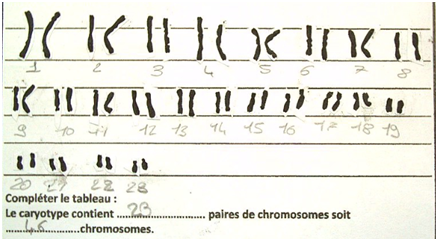 1 2 3 4 5 6 7 8
9 10 11 12 13 14 15 16 17 18 19
20 21 22 23
Compléter le tableau :
Le caryotype contient ..............23.............. paires de chromosomes soit
......46..............chromosomes.